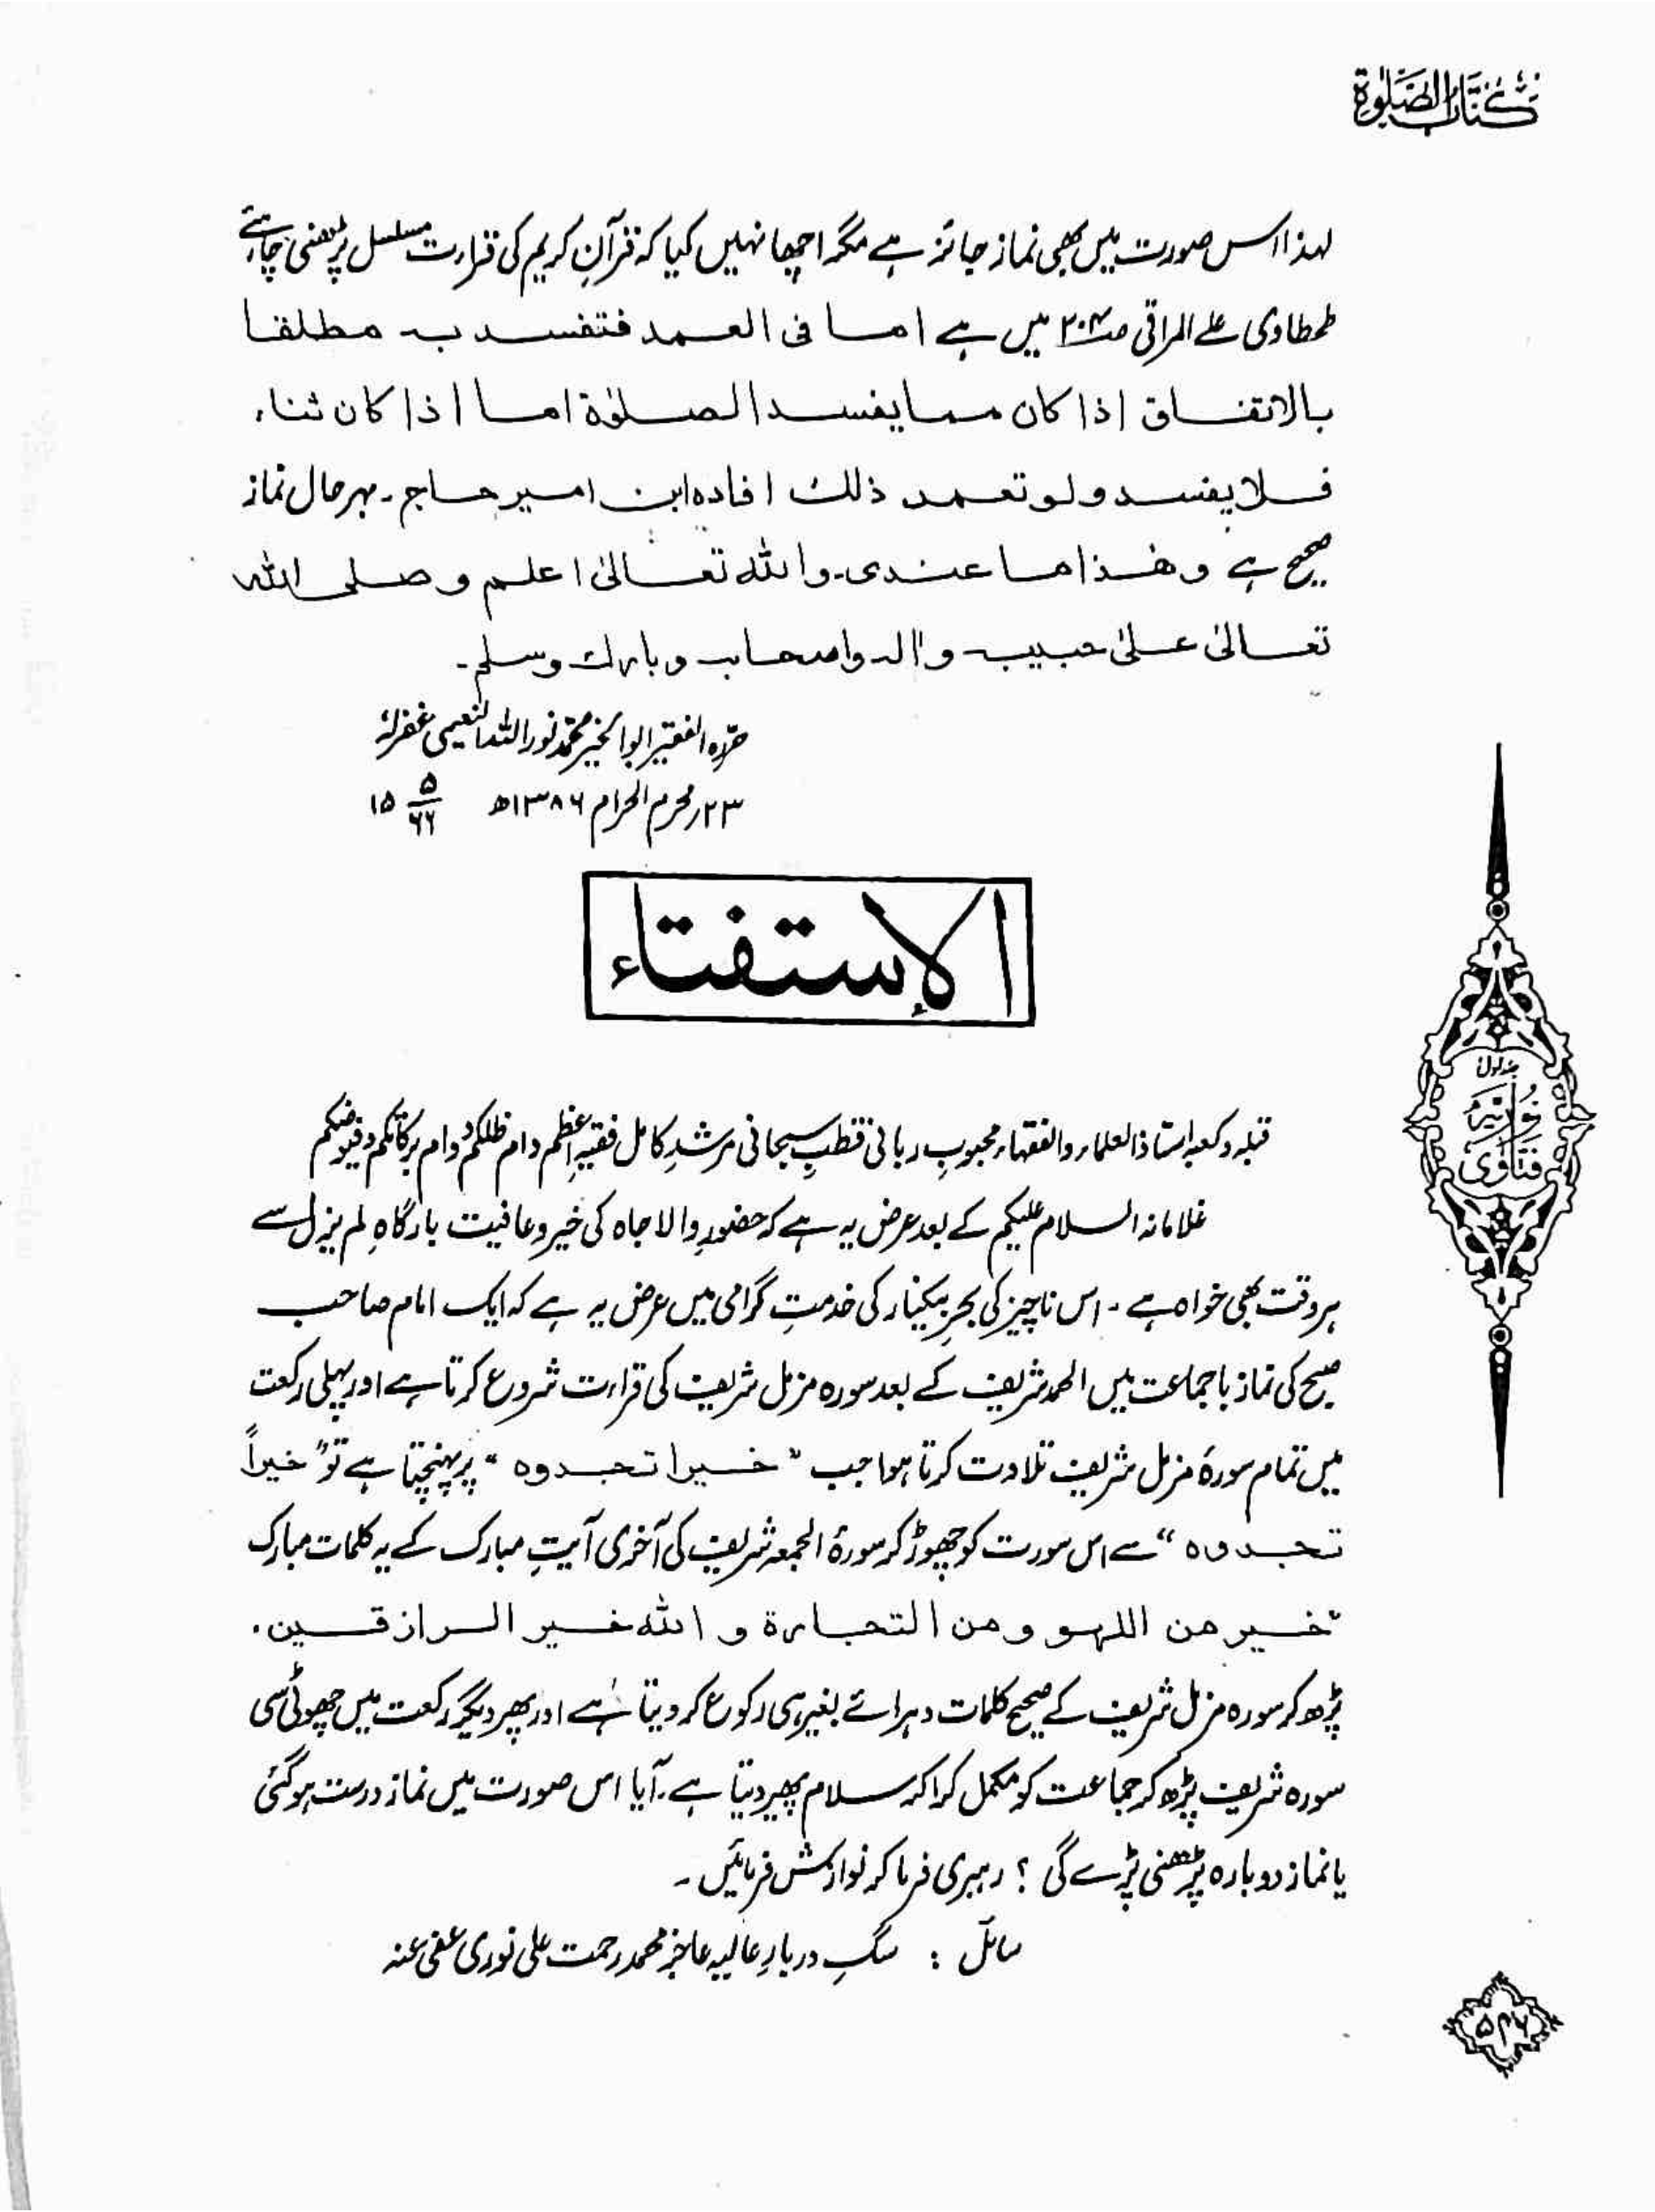 كتاب الصلوٰة
لہذا اس صورت میں بھی نماز جائز ہے مگر اچھا نہیں کیا کہ قرآنِ کریم کی قرارت مسلسل پڑھنی چاہئے
طحطاوی علے المراقی میں ہے اما فی العمد فتفسد بہ مطلقا
بالاتفاق اذا کان مما یفسد الصلوٰۃ اما اذا کان ثناء
فلا یفسد ولو تعمد ذلك افادہ ابن امیر حاج ۔ بہرحال نماز
صحیح ہے وھذا ما عندی ۔ واللہ تعالیٰ اعلم وصلی اللہ
تعالیٰ علیٰ حبیبہ واٰلہ واصحابہ وبارك وسلم ۔
حررہ الفقیر ابوالخیر محمد نور اللہ النعیمی غفرلہٗ
۲۳ر محرم الحرام ۱۳۸۶ھ ۱۵ ۵/۶۶
الاستفتاء
قبلہ وکعبہ استاذ العلماء والفقہاء محبوبِ ربانی قطبِ سبحانی مرشدِ کامل فقیہِ اعظم دام ظلکم ودام برکاتکم وفیوضکم
غلامانہ السلام علیکم کے بعد عرض یہ ہے کہ حضورِ والا جاہ کی خیر و عافیت بارگاہِ لم یزل سے
ہر وقت بھی خواہ ہے ۔ اس ناچیز کی بحرِ بیکنار کی خدمتِ گرامی میں عرض یہ ہے کہ ایک امام صاحب
صبح کی نماز باجماعت میں الحمد شریف کے بعد سورہ مزمل شریف کی قراءت شروع کرتا ہے اور پہلی رکعت
میں تمام سورۂ مزمل شریف تلاوت کرتا ہوا جب "خیرا تجدوہ" پر پہنچتا ہے تو "خیراً
تجدوہ" سے اس سورت کو چھوڑ کر سورۂ الجمعہ شریف کی آخری آیتِ مبارک کے یہ کلمات مبارک
"خیر من اللہو ومن التجارۃ واللہ خیر الرازقین۔
پڑھ کر سورہ مزمل شریف کے صحیح کلمات دہرائے بغیر ہی رکوع کر دیتا ہے اور پھر دیگر رکعت میں چھوٹی سی
سورہ شریف پڑھ کر جماعت کو مکمل کرا کر سلام پھیر دیتا ہے ۔ آیا اس صورت میں نماز درست ہو گئی
یا نماز دوبارہ پڑھنی پڑے گی ؟ رہبری فرما کر نوازش فرمائیں ۔
سائل : سگِ دربارِ عالیہ عاجز محمد رحمت علی نوری عفی عنہ
جلد اول
فتاوٰی نوریہ
۵۴۶